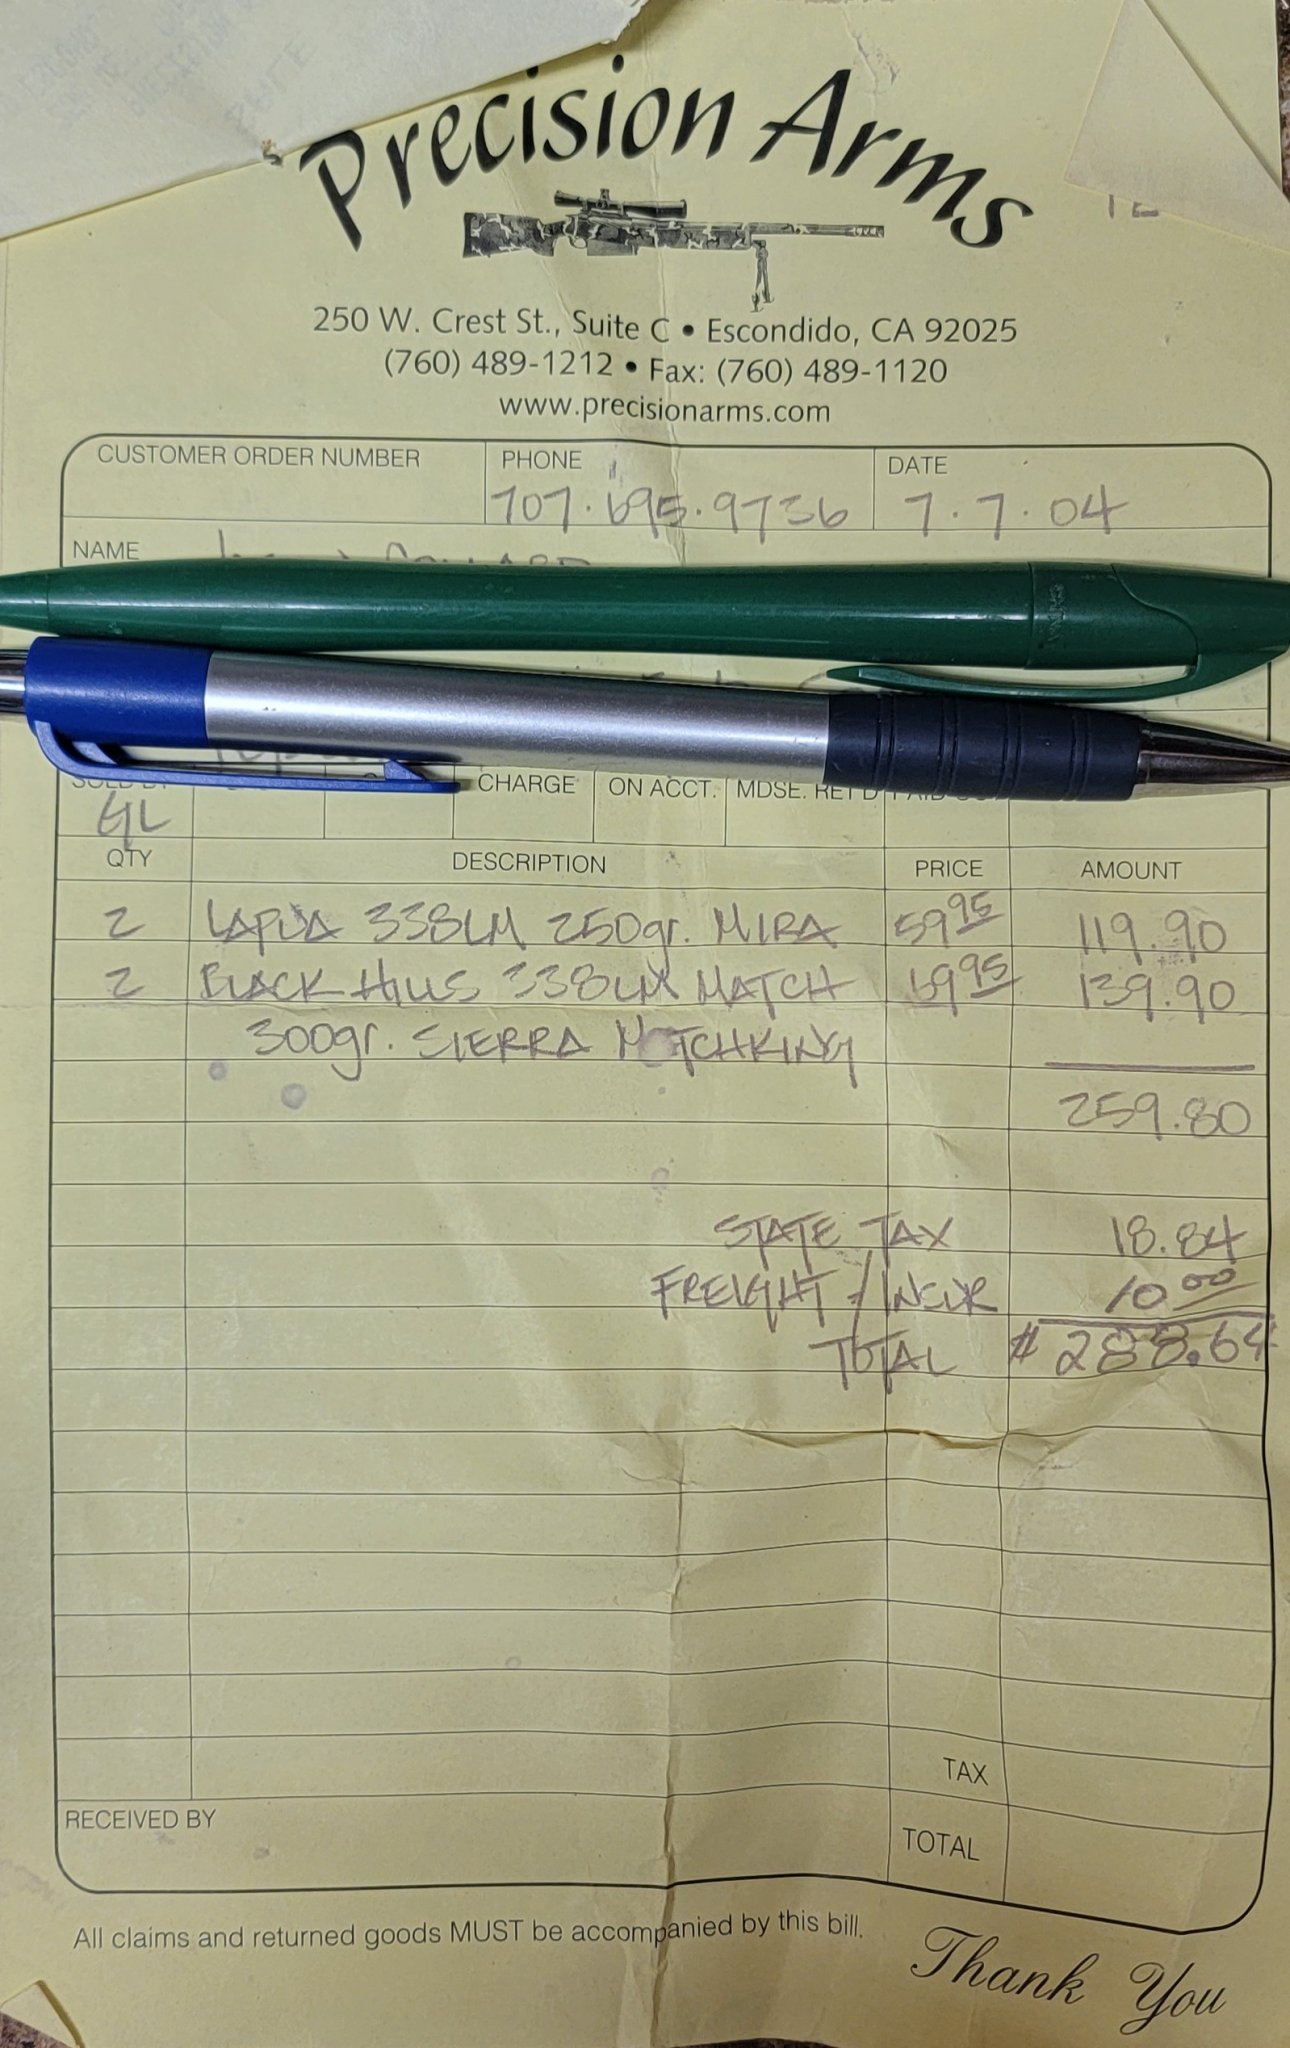 Precision Arms
250 W. Crest St., Suite C • Escondido, CA 92025
(760) 489-1212 • Fax: (760) 489-1120
www.precisionarms.com
CUSTOMER ORDER NUMBER PHONE DATE
707.695.9736 7.7.04
NAME
CHARGE ON ACCT. MDSE. RET'D
GL
QTY DESCRIPTION PRICE AMOUNT
2 LAPUA 338LM 250gr. MIRA 59 95 119.90
2 BLACK HILLS 338LM MATCH 69 95 139.90
300gr. SIERRA MATCHKING
259.80
STATE TAX 18.84
FREIGHT / INSUR 10 00
TOTAL $ 288.64
TAX
RECEIVED BY
TOTAL
All claims and returned goods MUST be accompanied by this bill.
Thank You